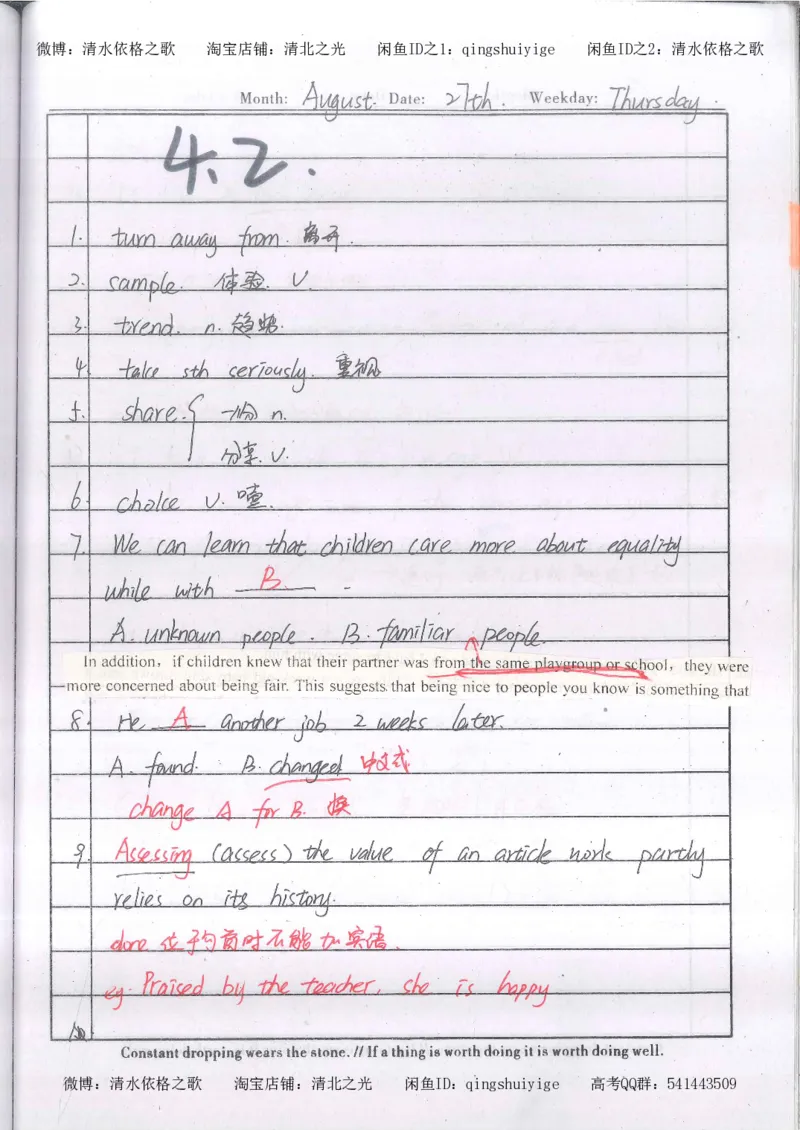 微博：清水依格之歌　淘宝店铺：清北之光　闲鱼ID之1：qingshuiyige　闲鱼ID之2：清水依格之歌
Month: August. Date: 27th. Weekday: Thursday.
4.2.
1. turn away from. 离开.
2. sample. 体验. V.
3. trend. n. 趋势.
4. take sth ceriously. 重视
5. share. { 一份 n.
分享. v.
6. choke v. 噎.
7. We can learn that children care more about equality
while with B.
A. unknown people. B. familiar people.
In addition, if children knew that their partner was from the same playgroup or school, they were
more concerned about being fair. This suggests that being nice to people you know is something that
8. He A another job 2 weeks later.
A. found. B. changed 中文式
change A for B. 换
9. Assessing (assess) the value of an article work parthy
relies on its history.
done 位于句首时不能加宾语.
eg. Praised by the teacher, she is happy
10.
Constant dropping wears the stone. // If a thing is worth doing it is worth doing well.
微博：清水依格之歌　淘宝店铺：清北之光　闲鱼ID：qingshuiyige　高考QQ群：541443509